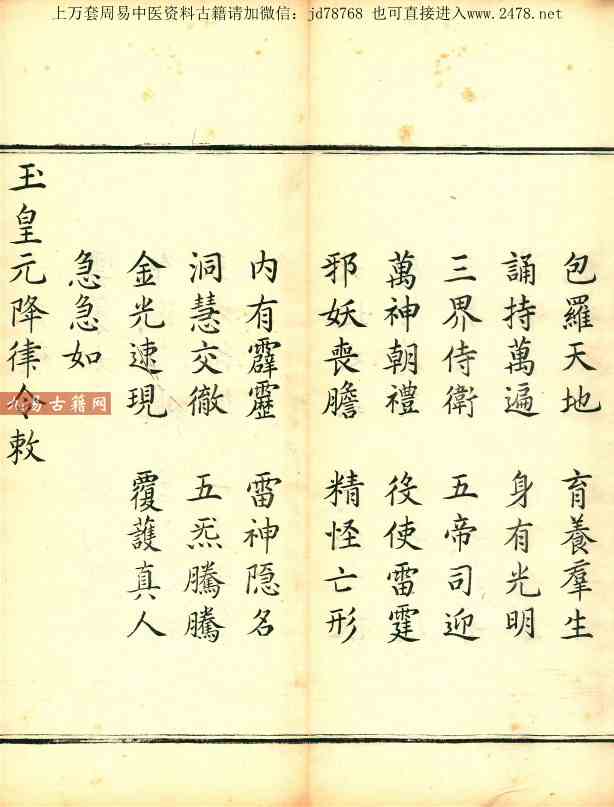 上万套周易中医资料古籍请加微信：jd78768 也可直接进入www.2478.net
包羅天地 育養羣生
誦持萬遍 身有光明
三界侍衛 五帝司迎
萬神朝禮 役使雷霆
邪妖喪膽 精怪亡形
内有霹靂 雷神隐名
洞慧交徹 五炁騰騰
金光速現 覆護真人
急急如
玉皇元降律令敕
九易古籍网